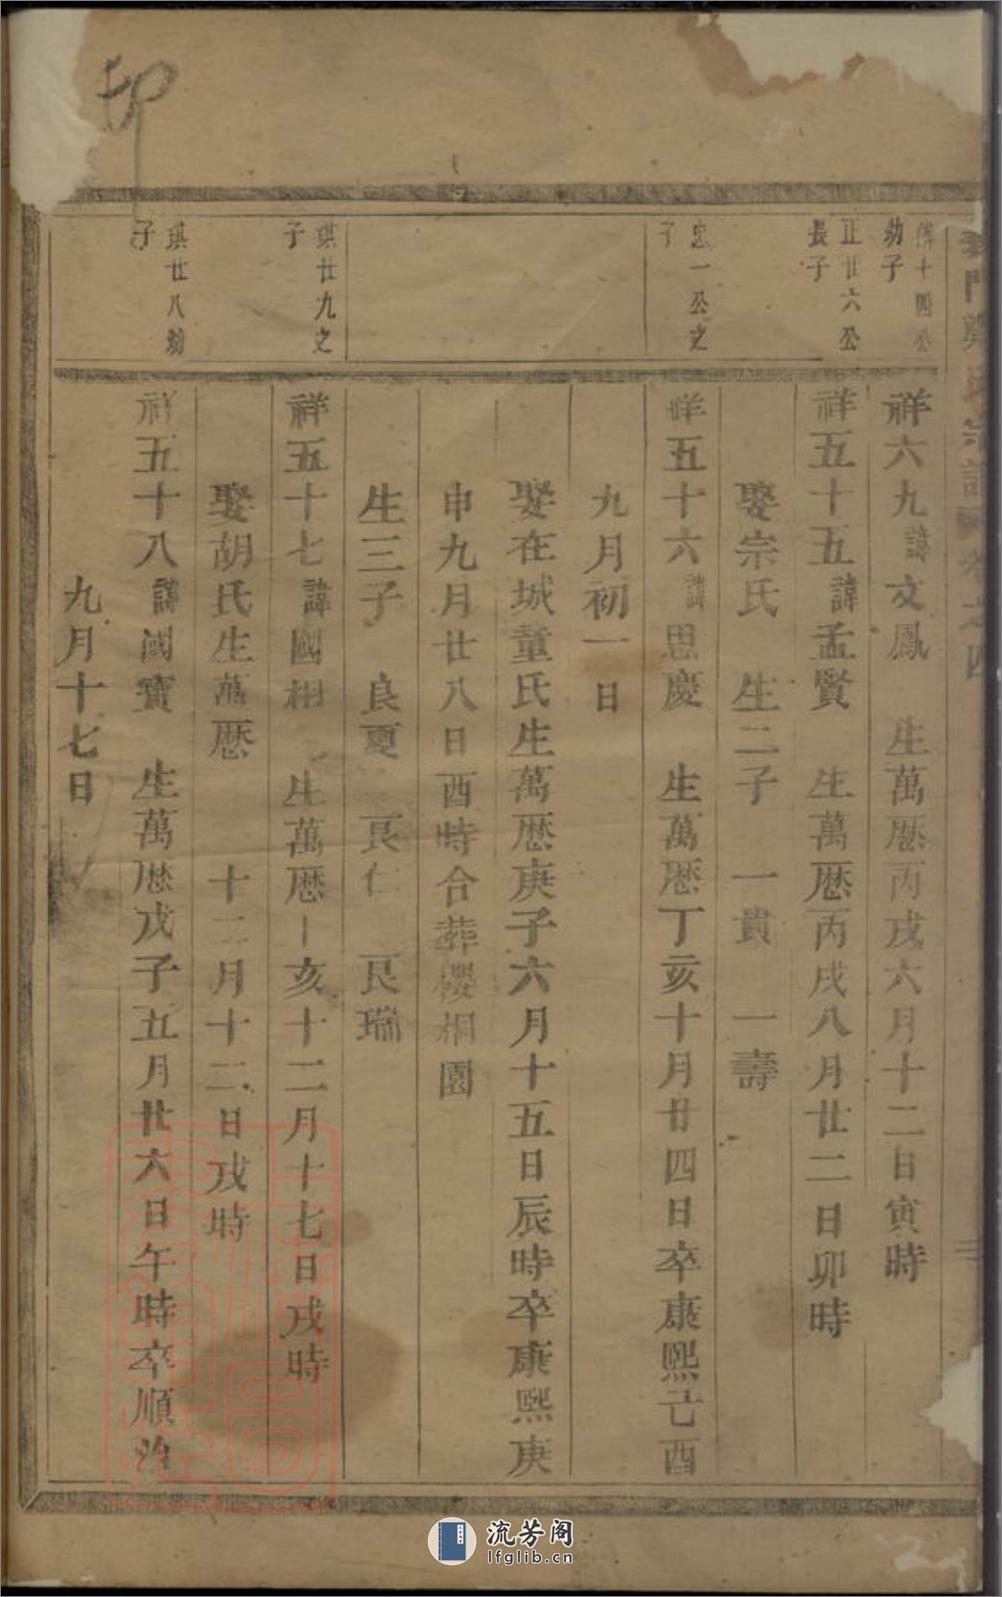 氏宗譜 卷之四
傳十四公
幼子
祥六九諱文鳳 生萬歷丙戌六月十二日寅時
正廿六公
長子
祥五十五諱孟賢 生萬歷丙戌八月廿二日卯時
娶宗氏 生二子 一貴 一壽
忠一公之
子
祥五十六諱思慶 生萬歷丁亥十月廿四日卒康熙己酉
九月初一日
娶在城童氏生萬歷庚子六月十五日辰時卒康熙庚
申九月廿八日酉時合葬櫻桐園
生三子 良更 良仁 良瑞
琪廿九之
子
祥五十七諱國相 生萬歷丁亥十二月十七日戌時
娶胡氏生萬歷 十二月十二日戌時
琪廿八幼
子
祥五十八諱國寶 生萬歷戊子五月廿六日午時卒順治
九月十七日
流芳阁
lfglib.cn